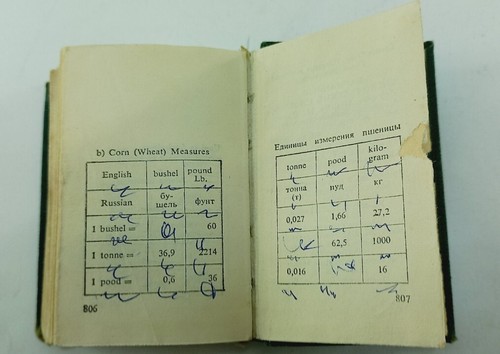 b) Corn (Wheat) Measures
English bushel pound Lb.
Russian бу- шель фунт
1 bushel = 60
1 tonne = 36,9 2214
1 pood = 0,6 36
806
Единицы измерения пшеницы
tonne pood kilo- gram
тонна (т) пуд кг
0,027 1,66 27,2
62,5 1000
0,016 16
807